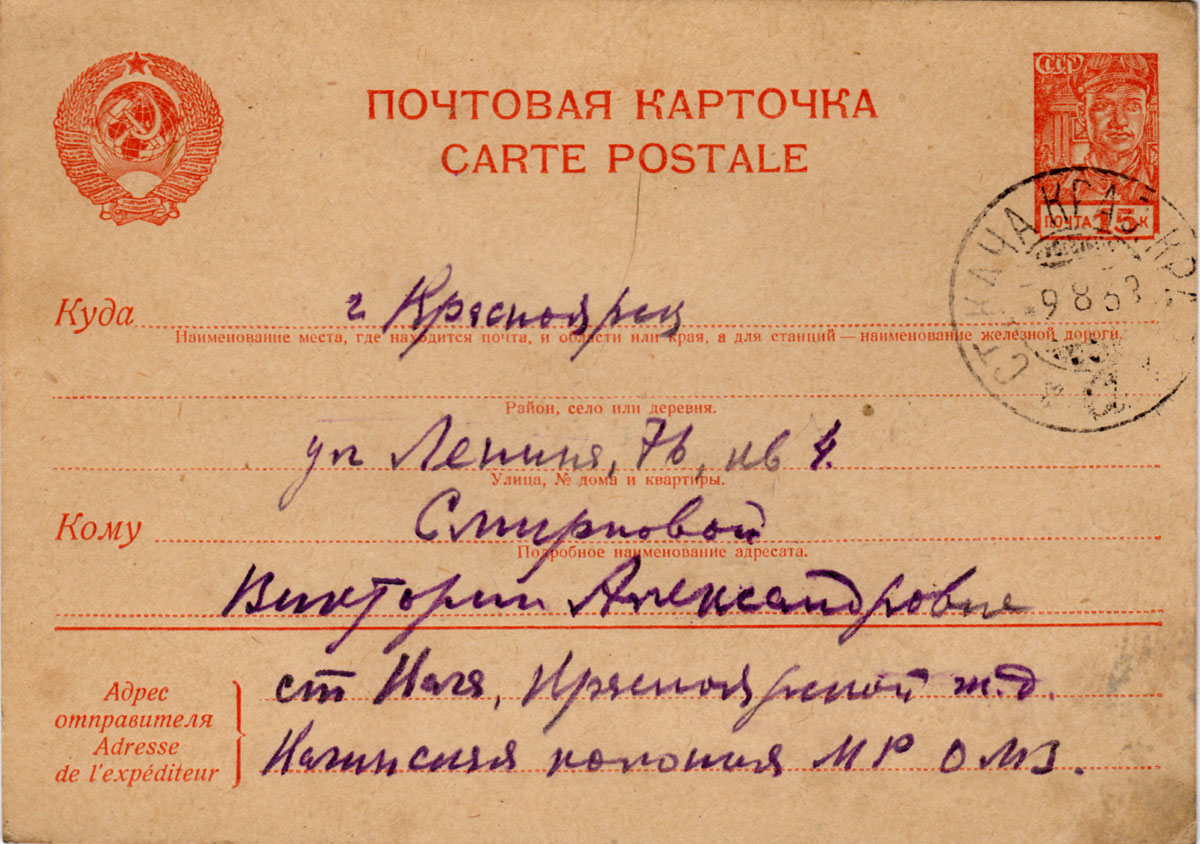 ПОЧТОВАЯ КАРТОЧКА
CARTE POSTALE
СССР
ПОЧТА 15 К
СТ КАЧА КРАС
9 8 6
Куда г Красноярск
Наименование места, где находится почта, и области или края, а для станций — наименование железной дороги.
Район, село или деревня.
ул Ленина, 76, кв 4.
Улица, № дома и квартиры.
Кому Смирновой
Подробное наименование адресата.
Виктории Александровне
Адрес отправителя
Adresse de l'expéditeur
ст Кача, Красноярской ж.д.
Качинская колония МР ОМЗ.